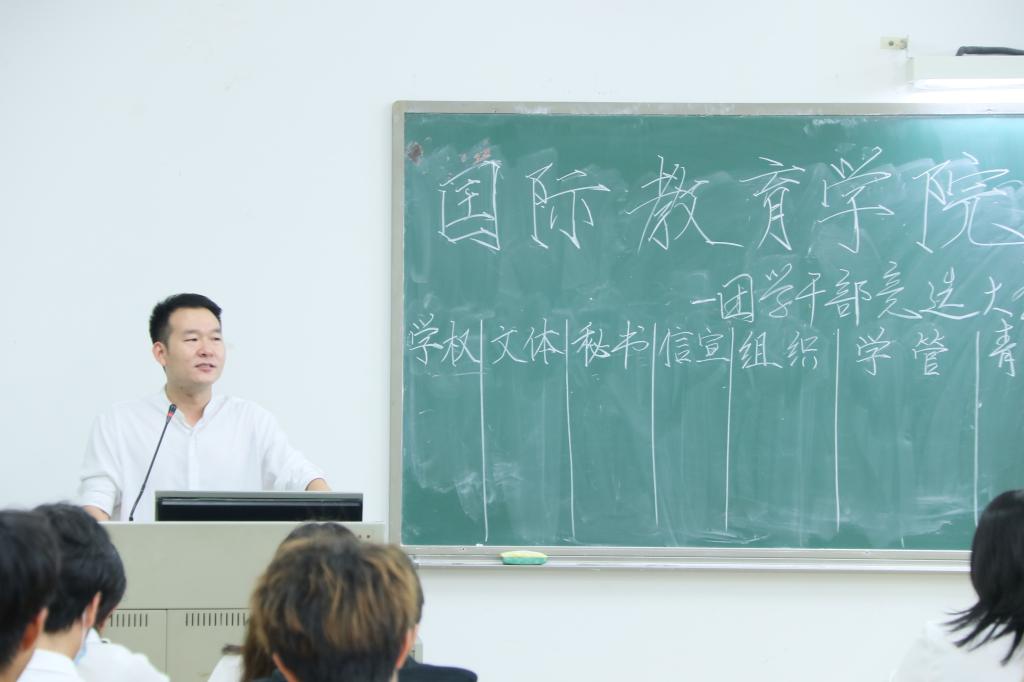 国际教育学院
一团学干部竞选大会
学权 文体 秘书 信宣 组织 学管 青